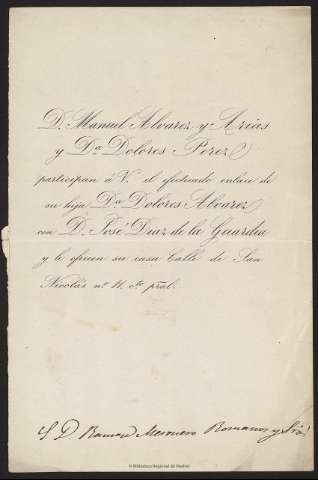 D. Manuel Alvarez y Arias
y Dª Dolores Perez
participan á V. el efectuado enlace de
su hija Dª Dolores Alvarez
con D. José Diaz de la Guardia
y le ofrecen su casa Calle de San
Nicolás nº 11, cto pral.
S D Ramon Mesonero Romanos y Srª
© Biblioteca Regional de Madrid